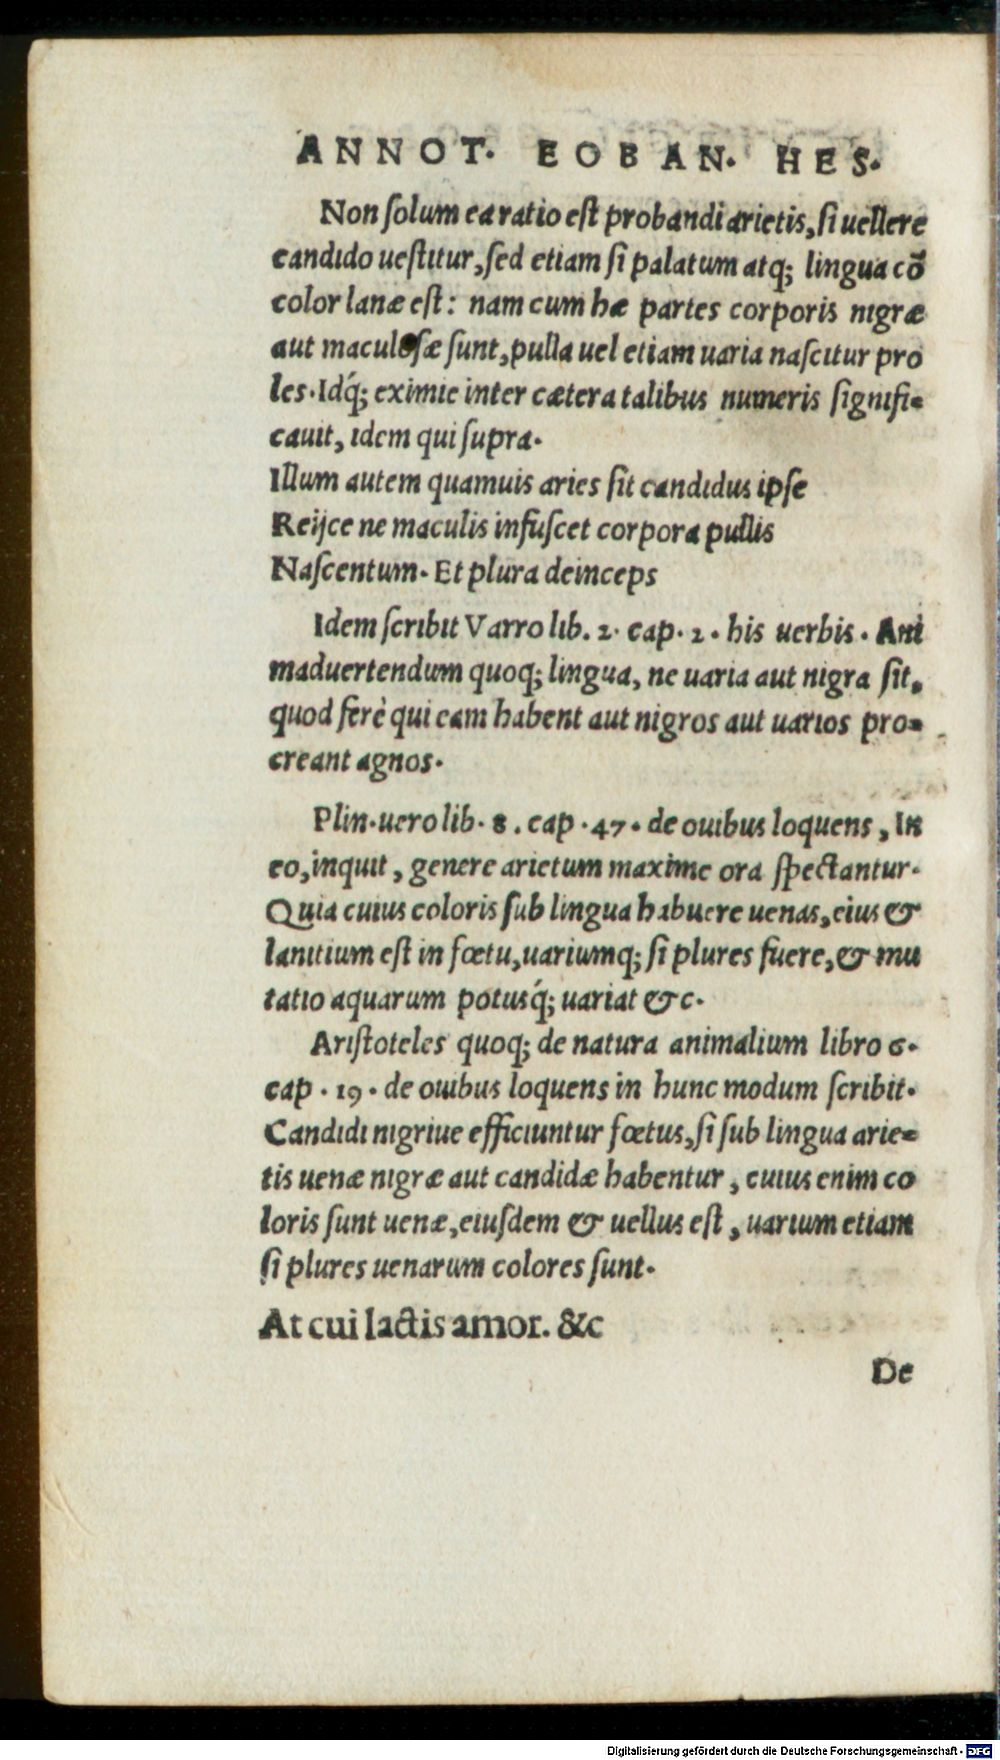 ANNOT. EOBAN. HES.
Non ſolum ea ratio eſt probandi arietis, ſi uellere
candido ueſtitur, ſed etiam ſi palatum atq; lingua cō
color lanæ eſt: nam cum hæ partes corporis nigræ
aut maculoſæ ſunt, pulla uel etiam uaria naſcitur pro
les. Idq́; eximie inter cætera talibus numeris ſignifi-
cauit, idem qui ſupra.
Illum autem quamuis aries ſit candidus ipſe
Reijce ne maculis infuſcet corpora pullis
Naſcentum. Et plura deinceps
Idem ſcribit Varro lib. 2. cap. 2. his uerbis. Ani
maduertendum quoq; lingua, ne uaria aut nigra ſit,
quod ferè qui eam habent aut nigros aut uarios pro-
creant agnos.
Plin. uero lib. 8. cap. 47. de ouibus loquens, In
eo, inquit, genere arietum maxime ora ſpectantur.
Quia cuius coloris ſub lingua habuere uenas, eius &
lanitium eſt in fœtu, uariumq; ſi plures fuere, & mu
tatio aquarum potusq́; uariat &c.
Ariſtoteles quoq; de natura animalium libro 6.
cap. 19. de ouibus loquens in hunc modum ſcribit.
Candidi nigriue efficiuntur fœtus, ſi ſub lingua arie-
tis uenæ nigræ aut candidæ habentur, cuius enim co
loris ſunt uenæ, eiuſdem & uellus eſt, uarium etiam
ſi plures uenarum colores ſunt.
At cui lactis amor. &c
De
Digitalisierung gefördert durch die Deutsche Forschungsgemeinschaft - DFG